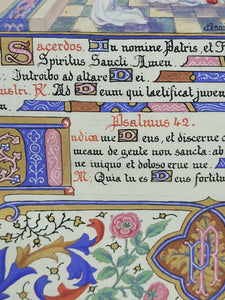 Sacerdos. In nomine Patris, et F
Spiritus Sancti. Amen.
. Introibo ad altare Dei.
istri. R. Ad Deum qui laetificat juven
Psalmus 42.
udica me Deus, et discerne c
meam de gente non sancta: ab
ne iniquo et doloso erue me.
M. Quia tu es Deus fortitu